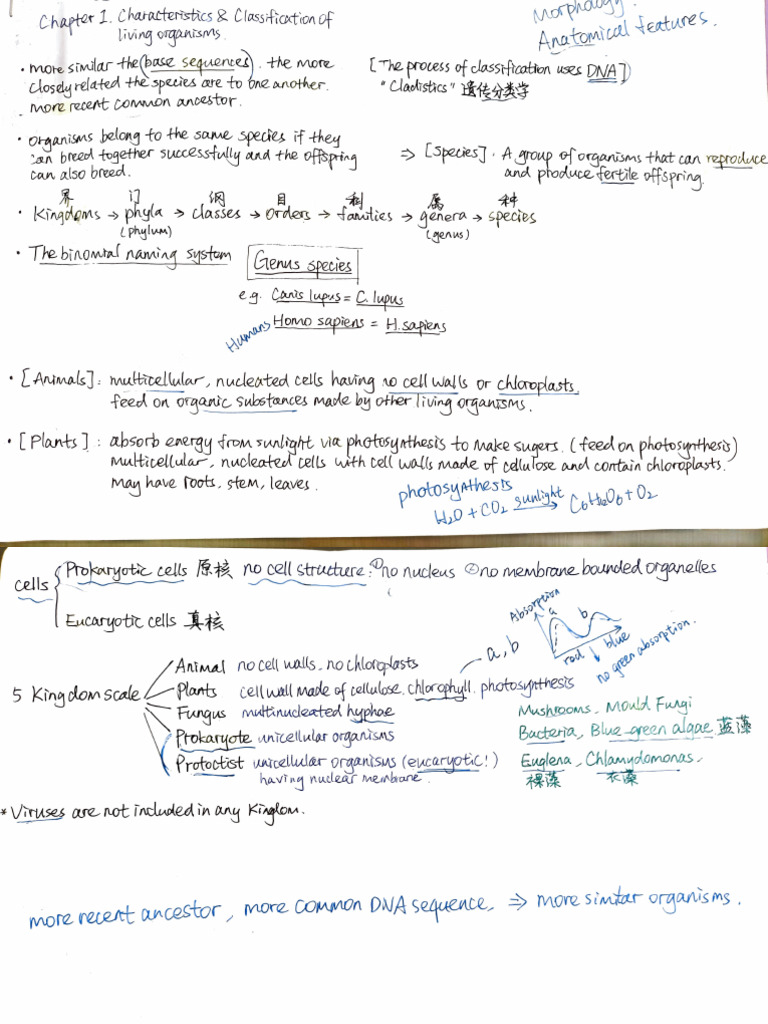 Chapter 1. Characteristics & Classification of
living organisms.
Morphology.
Anatomical features.
• more similar the (base sequences). the more
closely related the species are to one another.
more recent common ancestor.
[The process of classification uses DNA])
"Cladistics" 遗传分类学
• organisms belong to the same species if they
can breed together successfully and the offspring
can also breed.
⇒ [Species]. A group of organisms that can reproduce
and produce fertile offspring.
界 门 纲 目 科 属 种
• Kingdoms → phyla → classes → orders → families → genera → species
(phylum) (genus)
• The binomial naming system Genus species
e.g. Canis lupus = C. lupus
Humans Homo sapiens = H. sapiens
• [Animals]: multicellular, nucleated cells having no cell walls or chloroplasts,
feed on organic substances made by other living organisms.
• [Plants]: absorb energy from sunlight via photosynthesis to make sugers. (feed on photosynthesis)
multicellular, nucleated cells with cell walls made of cellulose and contain chloroplasts.
may have roots, stem, leaves.
photosynthesis
H2O + CO2 sunlight → C6H6O6 + O2
cells { Prokaryotic cells 原核 no cell structure: ① no nucleus ② no membrane bounded organelles
Eucaryotic cells 真核
Absorption
a b
red ↓ blue
no green absorption.
a, b
5 Kingdom scale
Animal no cell walls, no chloroplasts
Plants cell wall made of cellulose. chlorophyll. photosynthesis
Fungus multinucleated hyphae Mushrooms, Mould Fungi
Prokaryote unicellular organisms Bacteria, Blue-green algae 蓝藻
Protoctist unicellular organisus (eucaryotic!) Euglena, Chlamydomonas,
having nuclear membrane. 裸藻 衣藻
* Viruses are not included in any Kingdom.
more recent ancestor, more common DNA sequence, ⇒ more similar organisms.